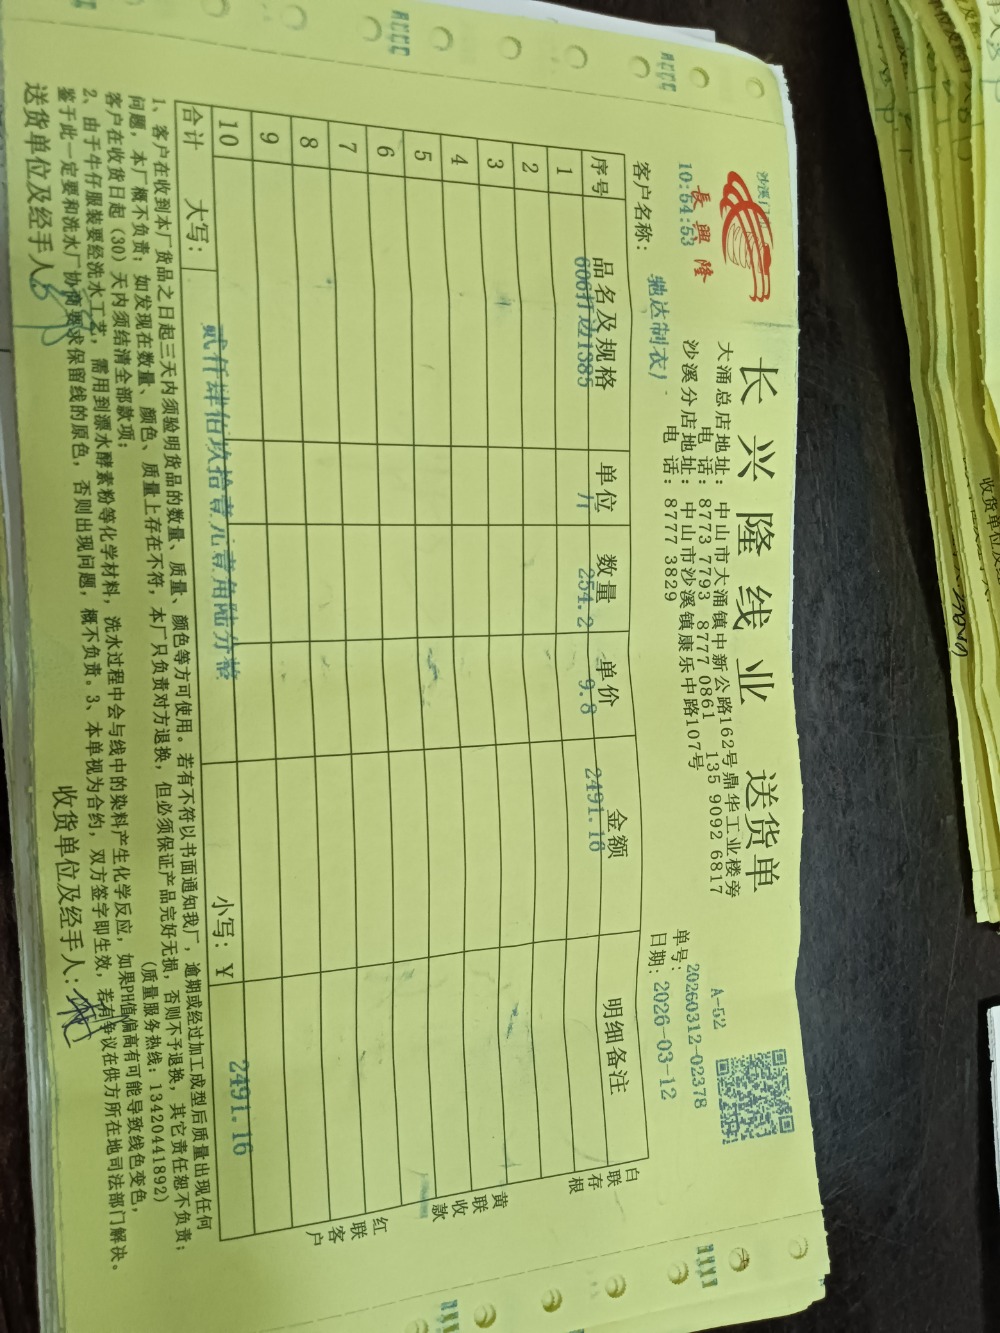 沙溪门
長興隆
长兴隆线业 送货单
大涌总店地址：中山市大涌镇中新公路162号鼎华工业楼旁
电话：8773 7793 8777 0861 135 9092 6817
沙溪分店地址：中山市沙溪镇康乐中路107号
电话：8777 3829
A-52
10:54:53
单号：20260312-02378
客户名称：驰达制衣厂
日期：2026-03-12
序号 品名及规格 单位 数量 单价 金额 明细备注
1 606打边1385 斤 254.2 9.8 2491.16
2
3
4
5
6
7
8
9
10
合计 大写：贰仟肆佰玖拾壹元壹角陆分整 小写：¥ 2491.16
白联存根
黄联收款
红联客户
1、客户在收到本厂货品之日起三天内须验明货品的数量、质量、颜色等方可使用。若有不符以书面通知我厂，逾期或经过加工成型后质量出现任何
问题，本厂概不负责；如发现在数量、颜色、质量上存在不符，本厂只负责对方退换，但必须保证产品完好无损，否则不予退换，其它责任恕不负责；
客户在收货日起（30）天内须结清全部款项； （质量服务热线：13420441892）
2、由于牛仔服装要经洗水工艺，需用到漂水酵素粉等化学材料，洗水过程中会与线中的染料产生化学反应，如果PH值偏高有可能导致线色变色，
鉴于此一定要和洗水厂协商要求保留线的原色，否则出现问题，概不负责。3、本单视为合约，双方签字即生效，若有争议在供方所在地司法部门解决。
送货单位及经手人： 收货单位及经手人：